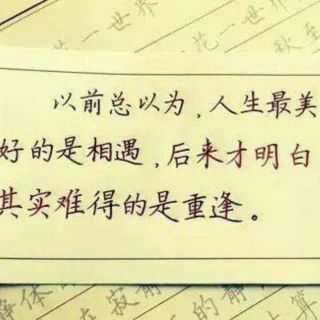 花一世界
以前总以为，人生最美
好的是相遇，后来才明白
其实难得的是重逢。